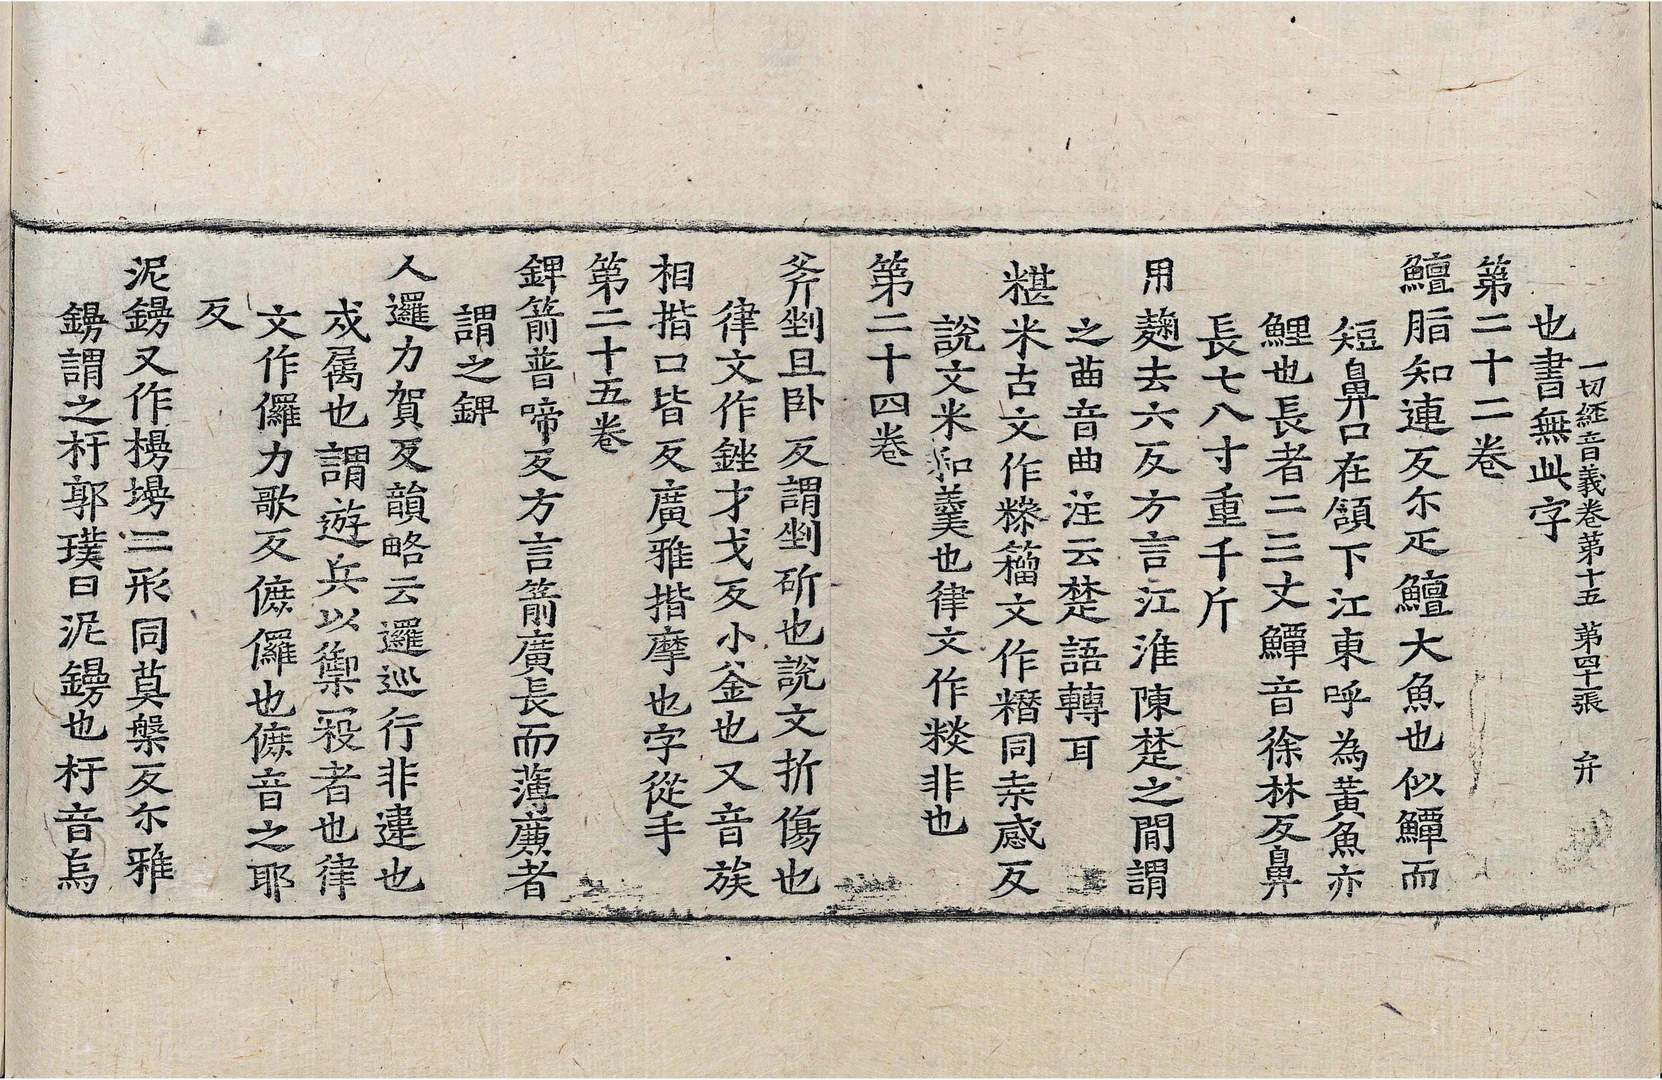 一切經音義卷第十五　第四十張　弁
也書無此字
第二十二卷
鱣脂知連反尒疋鱣大魚也似鱏而
短鼻口在頷下江東呼為黃魚亦
鯉也長者二三丈鱏音徐林反鼻
長七八寸重千斤
用麹去六反方言江淮陳楚之間謂
之䒼音曲注云楚語轉耳
糂米古文作糝籕文作糣同桒感反
說文米和羹也律文作䊏非也
第二十四卷
斧剉且卧反謂剉斫也說文折傷也
律文作銼才戈反小釜也又音族
相揩口皆反廣雅揩摩也字從手
第二十五卷
錍箭普啼反方言箭廣長而薄廉者
謂之錍
人邏力賀反韻略云邏巡行非違也
戍屬也謂遊兵以禦寇者也律
文作儸力歌反㒋儸也㒋音之耶
反
泥鏝又作槾墁二形同莫槃反尒雅
鏝謂之杅郭璞曰泥鏝也杅音烏